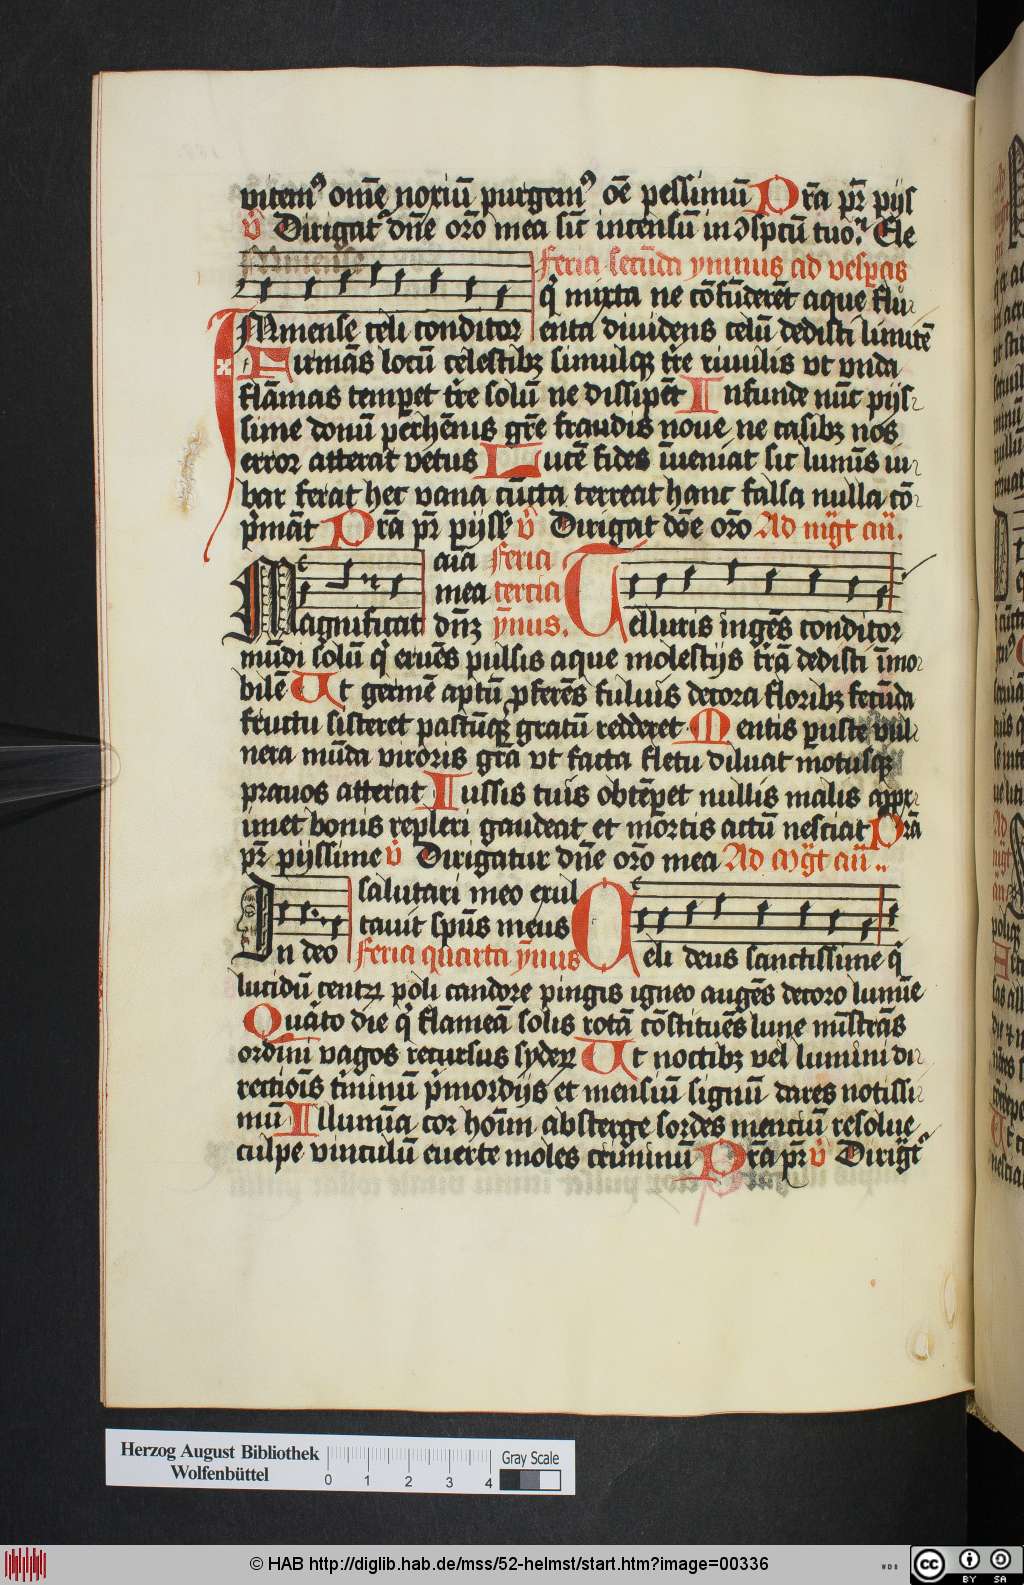 vitemꝰ om̄e noxiū purgemꝰ oē pessimū Pr̄a pr̄ pijs
v̊ Dirigat᷑ dn̄e oro̅ mea sic̄ incensū in ꝯspcū tuo. Ele
Feria secūda ymnus ad vesp̄as
q̇ mixta ne cōfūderēt aque flu
Inmense celi conditor enta diuidens celū dedisti limitē
Firmās locū celestibꝫ simulqꝫ tr̄e riuulis vt vnda
flāmas temperet tr̄e solū ne dissipēt Infunde nūc pijs
sime donū perhēnis gr̄e fraudis noue ne casibꝫ nos
error atterat vetus Lucē fides īueniat sic lumīs iu
bar ferat hec vana cūcta terreat hanc falsa nulla cō
p̄māt Pr̄a pr̄ pijsse v̊ Dirigat dōe oro̅ Ad mg̅t an̄.
aīa Feria
mea tercia
Magnificat dn̄ꝫ ȳnus. Telluris ingēs conditor
mūdi solū q̇ eruēs pulsis aque molestijs tr̄ā dedisti īmo
bilē Ut germē aptū ꝓferēs fuluis decora floribꝫ fecūda
fructu sisteret pastūqꝫ gratū redderet Mentis p̱uste vul
nera mūda viroris gr̄a vt facta fletu diluat motusqꝫ
prauos atterat Iussis tuis obtēp̱et nullis malis appr
imet bonis repleri gaudeat et mortis actū nesciat Pr̄a
pr̄ pijssime v̊ Dirigatur dn̄e oro̅ mea Ad mg̅t an̄ ..
salutari meo exul
tauit sp̄us meus
In deo Feria quarta ȳnus Celi deus sanctissime q̇
lucidū centꝝ poli candore pingis igneo augēs decoro lumīe
Quāto die q̇ flameā solis rotā cōstituēs lune mīstrās
ordini vagos recursus sydeꝝ Ut noctibꝫ vel lumini di
rectiōis tīminū p̄mordijs et mensiū signū dares notissi
mū Illumīa cor hoīm absterge sordes menciū resolue
culpe vinculū euerte moles criminū Pr̄a pr̄ v̊ Dirig̅t᷑
Herzog August Bibliothek
Wolfenbüttel
0 1 2 3 4
Gray Scale
© HAB http://diglib.hab.de/mss/52-helmst/start.htm?image=00336
WDB
cc BY SA